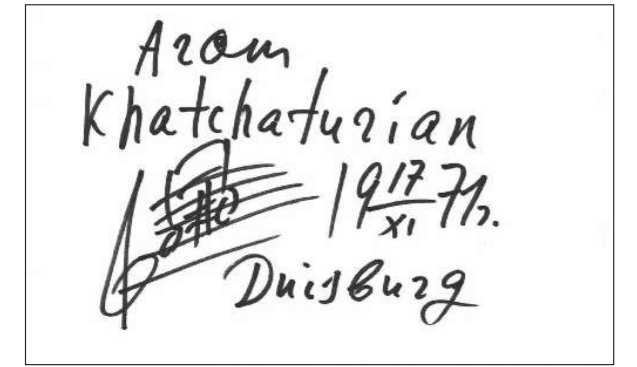 Aram
Khatchaturian
19 17/XI 71г.
Duisburg